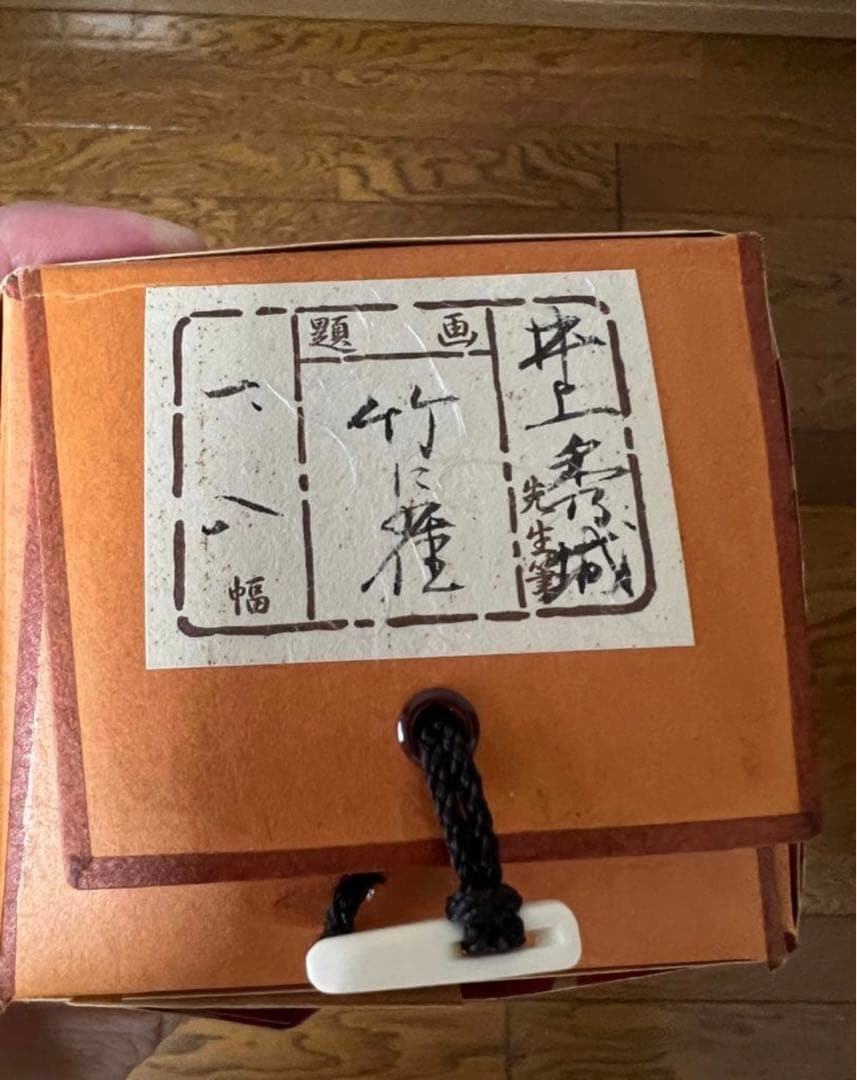 井上秀城
先生筆
画題
竹に雀
一、八
幅